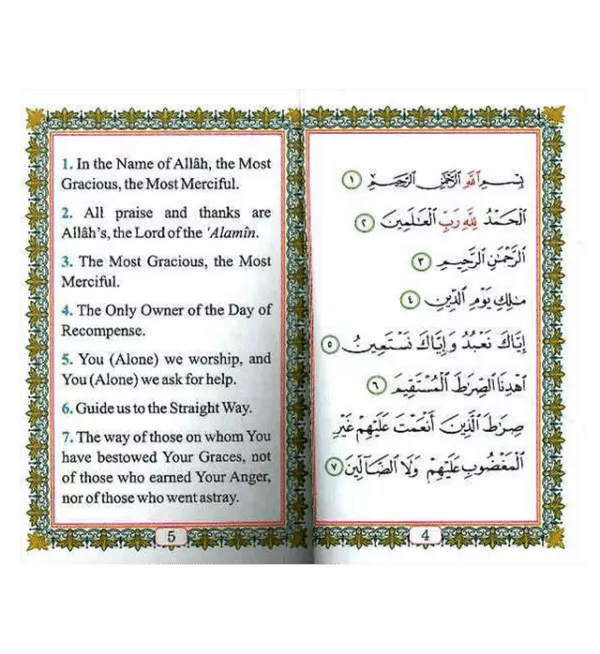 بِسْمِ ٱللَّهِ ٱلرَّحْمَٰنِ ٱلرَّحِيمِ ١
ٱلْحَمْدُ لِلَّهِ رَبِّ ٱلْعَٰلَمِينَ ٢
ٱلرَّحْمَٰنِ ٱلرَّحِيمِ ٣
مَٰلِكِ يَوْمِ ٱلدِّينِ ٤
إِيَّاكَ نَعْبُدُ وَإِيَّاكَ نَسْتَعِينُ ٥
ٱهْدِنَا ٱلصِّرَٰطَ ٱلْمُسْتَقِيمَ ٦
صِرَٰطَ ٱلَّذِينَ أَنْعَمْتَ عَلَيْهِمْ غَيْرِ
ٱلْمَغْضُوبِ عَلَيْهِمْ وَلَا ٱلضَّآلِّينَ ٧
4
1. In the Name of Allâh, the Most
Gracious, the Most Merciful.
2. All praise and thanks are
Allâh's, the Lord of the 'Alamîn.
3. The Most Gracious, the Most
Merciful.
4. The Only Owner of the Day of
Recompense.
5. You (Alone) we worship, and
You (Alone) we ask for help.
6. Guide us to the Straight Way.
7. The way of those on whom You
have bestowed Your Graces, not
of those who earned Your Anger,
nor of those who went astray.
5